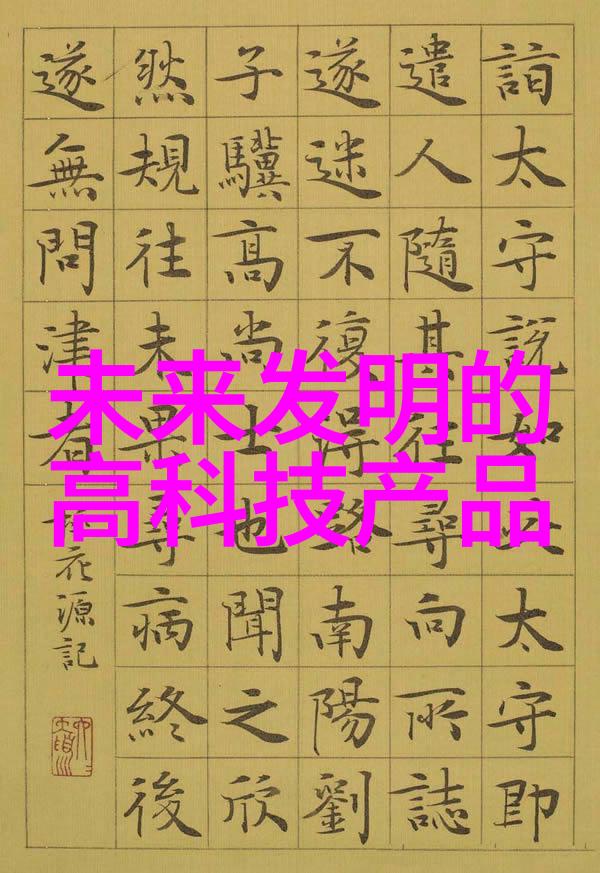 詣太守說如此太守即
遣人隨其往尋向所誌
遂迷不復得路南陽劉
子驥高尚士也聞之欣
然規往未果尋病終後
遂無問津者
桃花源記
未来发明的
高科技产品